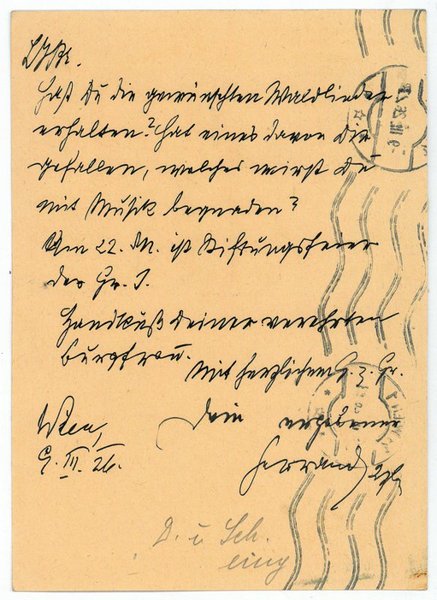 Hast Du die gewünschten Waldlieder
erhalten? Hat eines davon Dir
gefallen, welches wirst Du
mit Musik begnaden?
Am 22. d. M. ist Stiftungsfeier
der Gr. I.
Handkuß Deiner verehrten
Burgfrau.
Mit herzlichem G. z. Gr.
Dein ergebener
Wien,
9. III. 26.
D. u Sch.